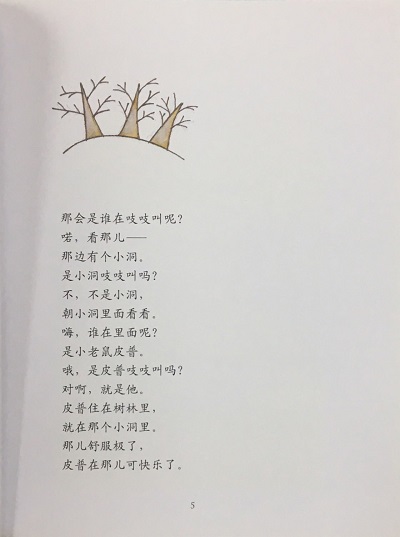 那会是谁在吱吱叫呢？
喏，看那儿——
那边有个小洞。
是小洞吱吱叫吗？
不，不是小洞，
朝小洞里面看看。
嗨，谁在里面呢？
是小老鼠皮普。
哦，是皮普吱吱叫吗？
对啊，就是他。
皮普住在树林里，
就在那个小洞里。
那儿舒服极了，
皮普在那儿可快乐了。
5